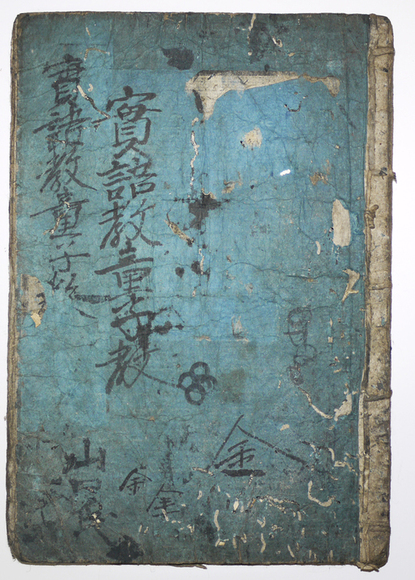 實語教童子教
實語教童子教
金
金
金
山口